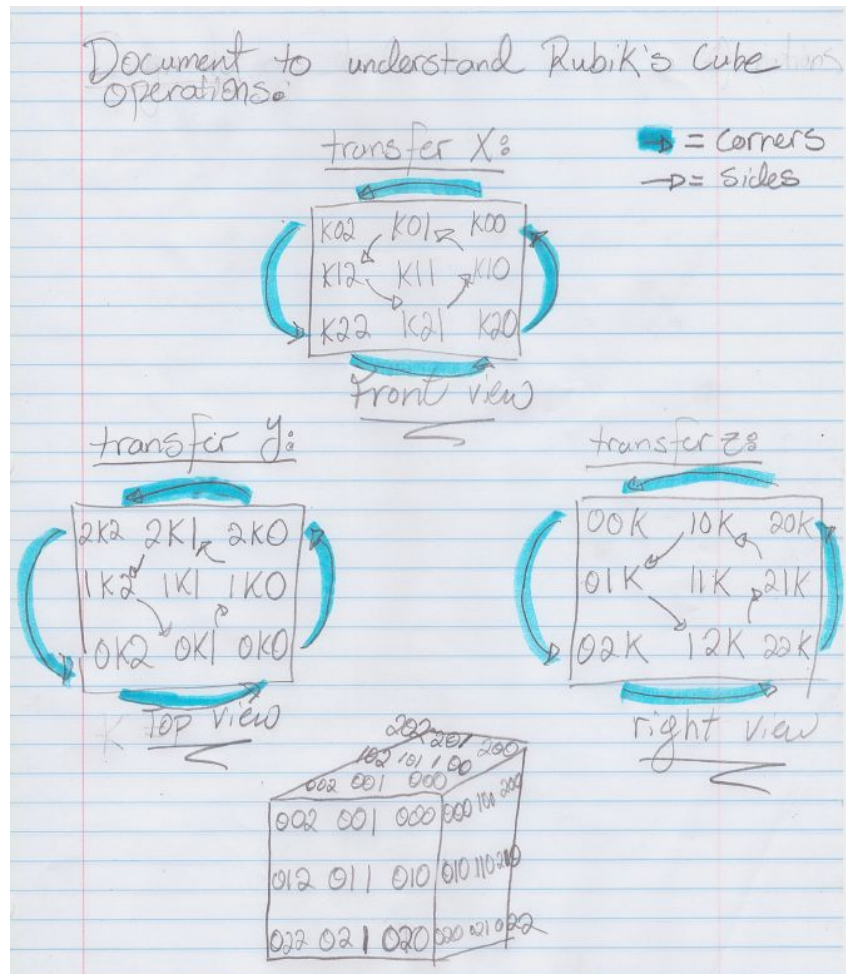 Document to understand Rubik's Cube
operations.
transfer X:
→ = corners
→ = sides
K02 K01 K00
K12 K11 K10
K22 K21 K20
Front view
transfer y:
transfer z:
2K2 2K1 2K0
1K2 1K1 1K0
0K2 0K1 0K0
Top view
00K 10K 20K
01K 11K 21K
02K 12K 22K
right view
202 201 200
102 101 100
002 001 000
002 001 000 000 100 200
012 011 010 010 110 210
022 021 020 020 021 022